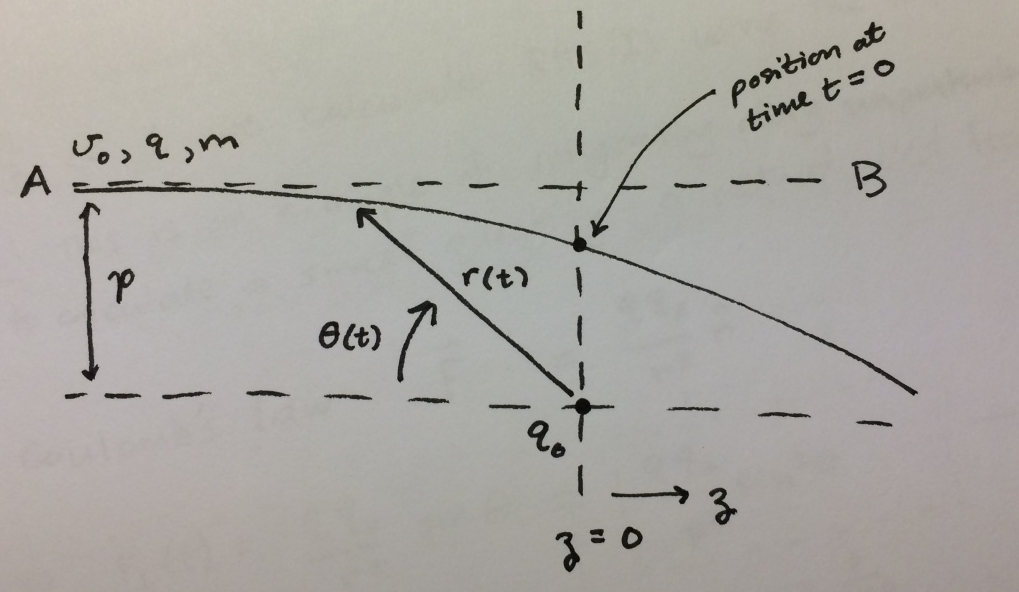 position at
time t = 0
v₀, q, m
A
B
p
r(t)
θ(t)
q₀
z
z = 0